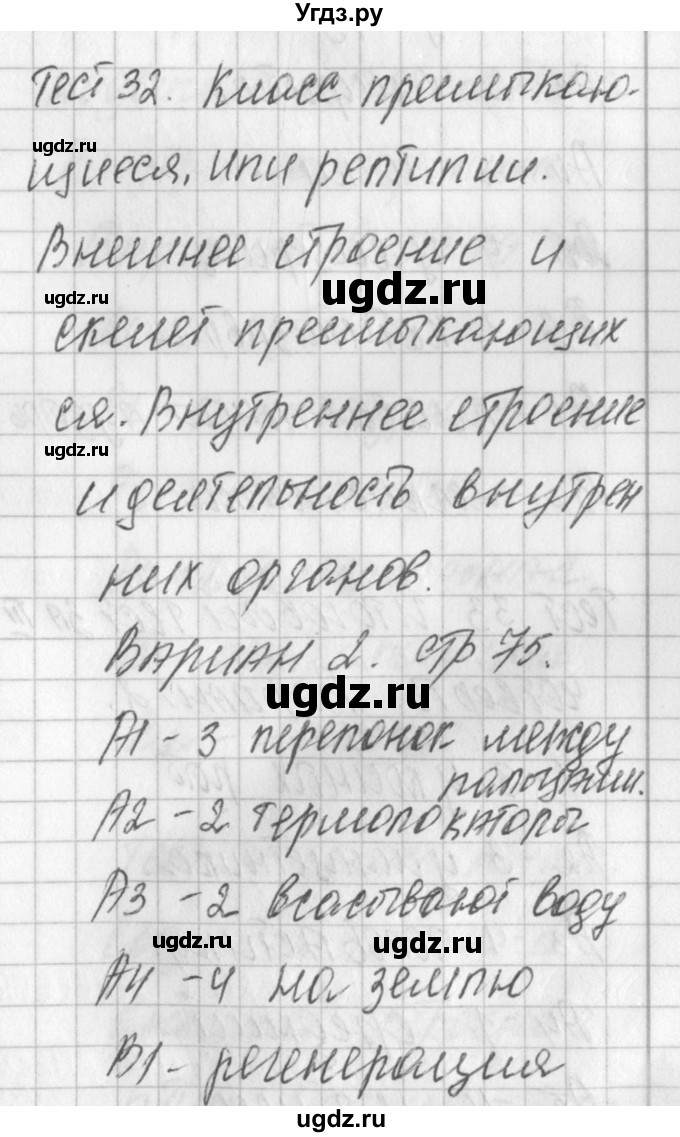 Угдз.ру
Тест 32. Класс пресмыкаю-
ugdz.ru
щиеся, или рептилии.
Внешнее строение и
ugdz.ru
ugdz.ru
скелет пресмыкающих
ся. Внутреннее строение
ugdz.ru
и деятельность внутрен
них органов.
Вариан 2. стр 75.
ugdz.ru
А1 - 3 перепонок между
пальцами.
А2 - 2 термолокаторы
А3 - 2 всасывают воду
ugdz.ru
ugdz.ru
А4 - 4 на землю
В1 - регенерация
ugdz.ru